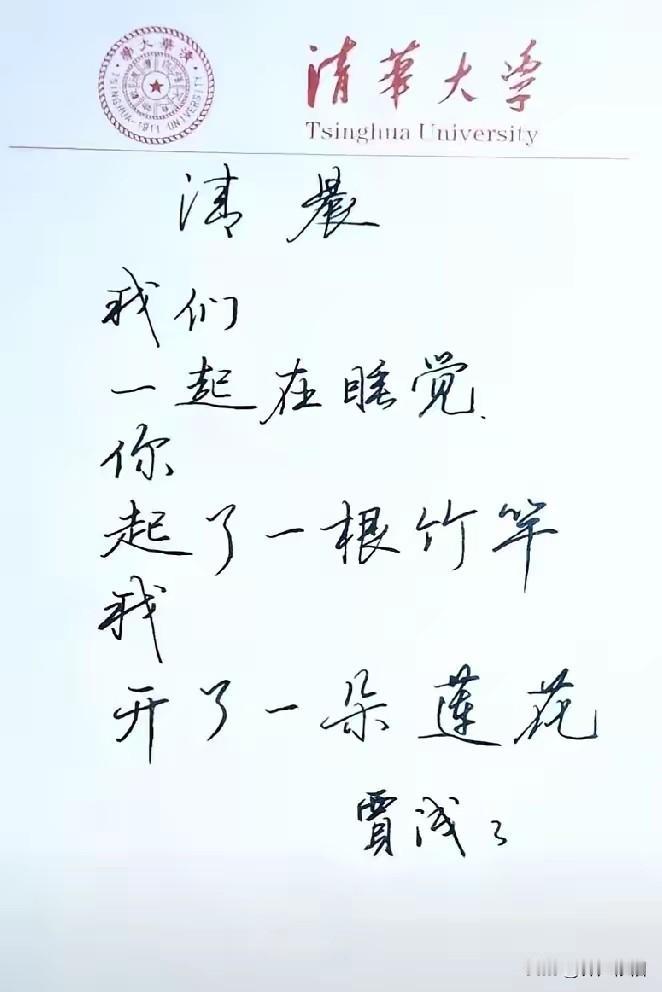 清華大学
Tsinghua University
TSINGHUA·1911·UNIVERSITY
清晨
我们
一起在睡觉.
你
起了一根竹竿
我
开了一朵莲花
賈浅々